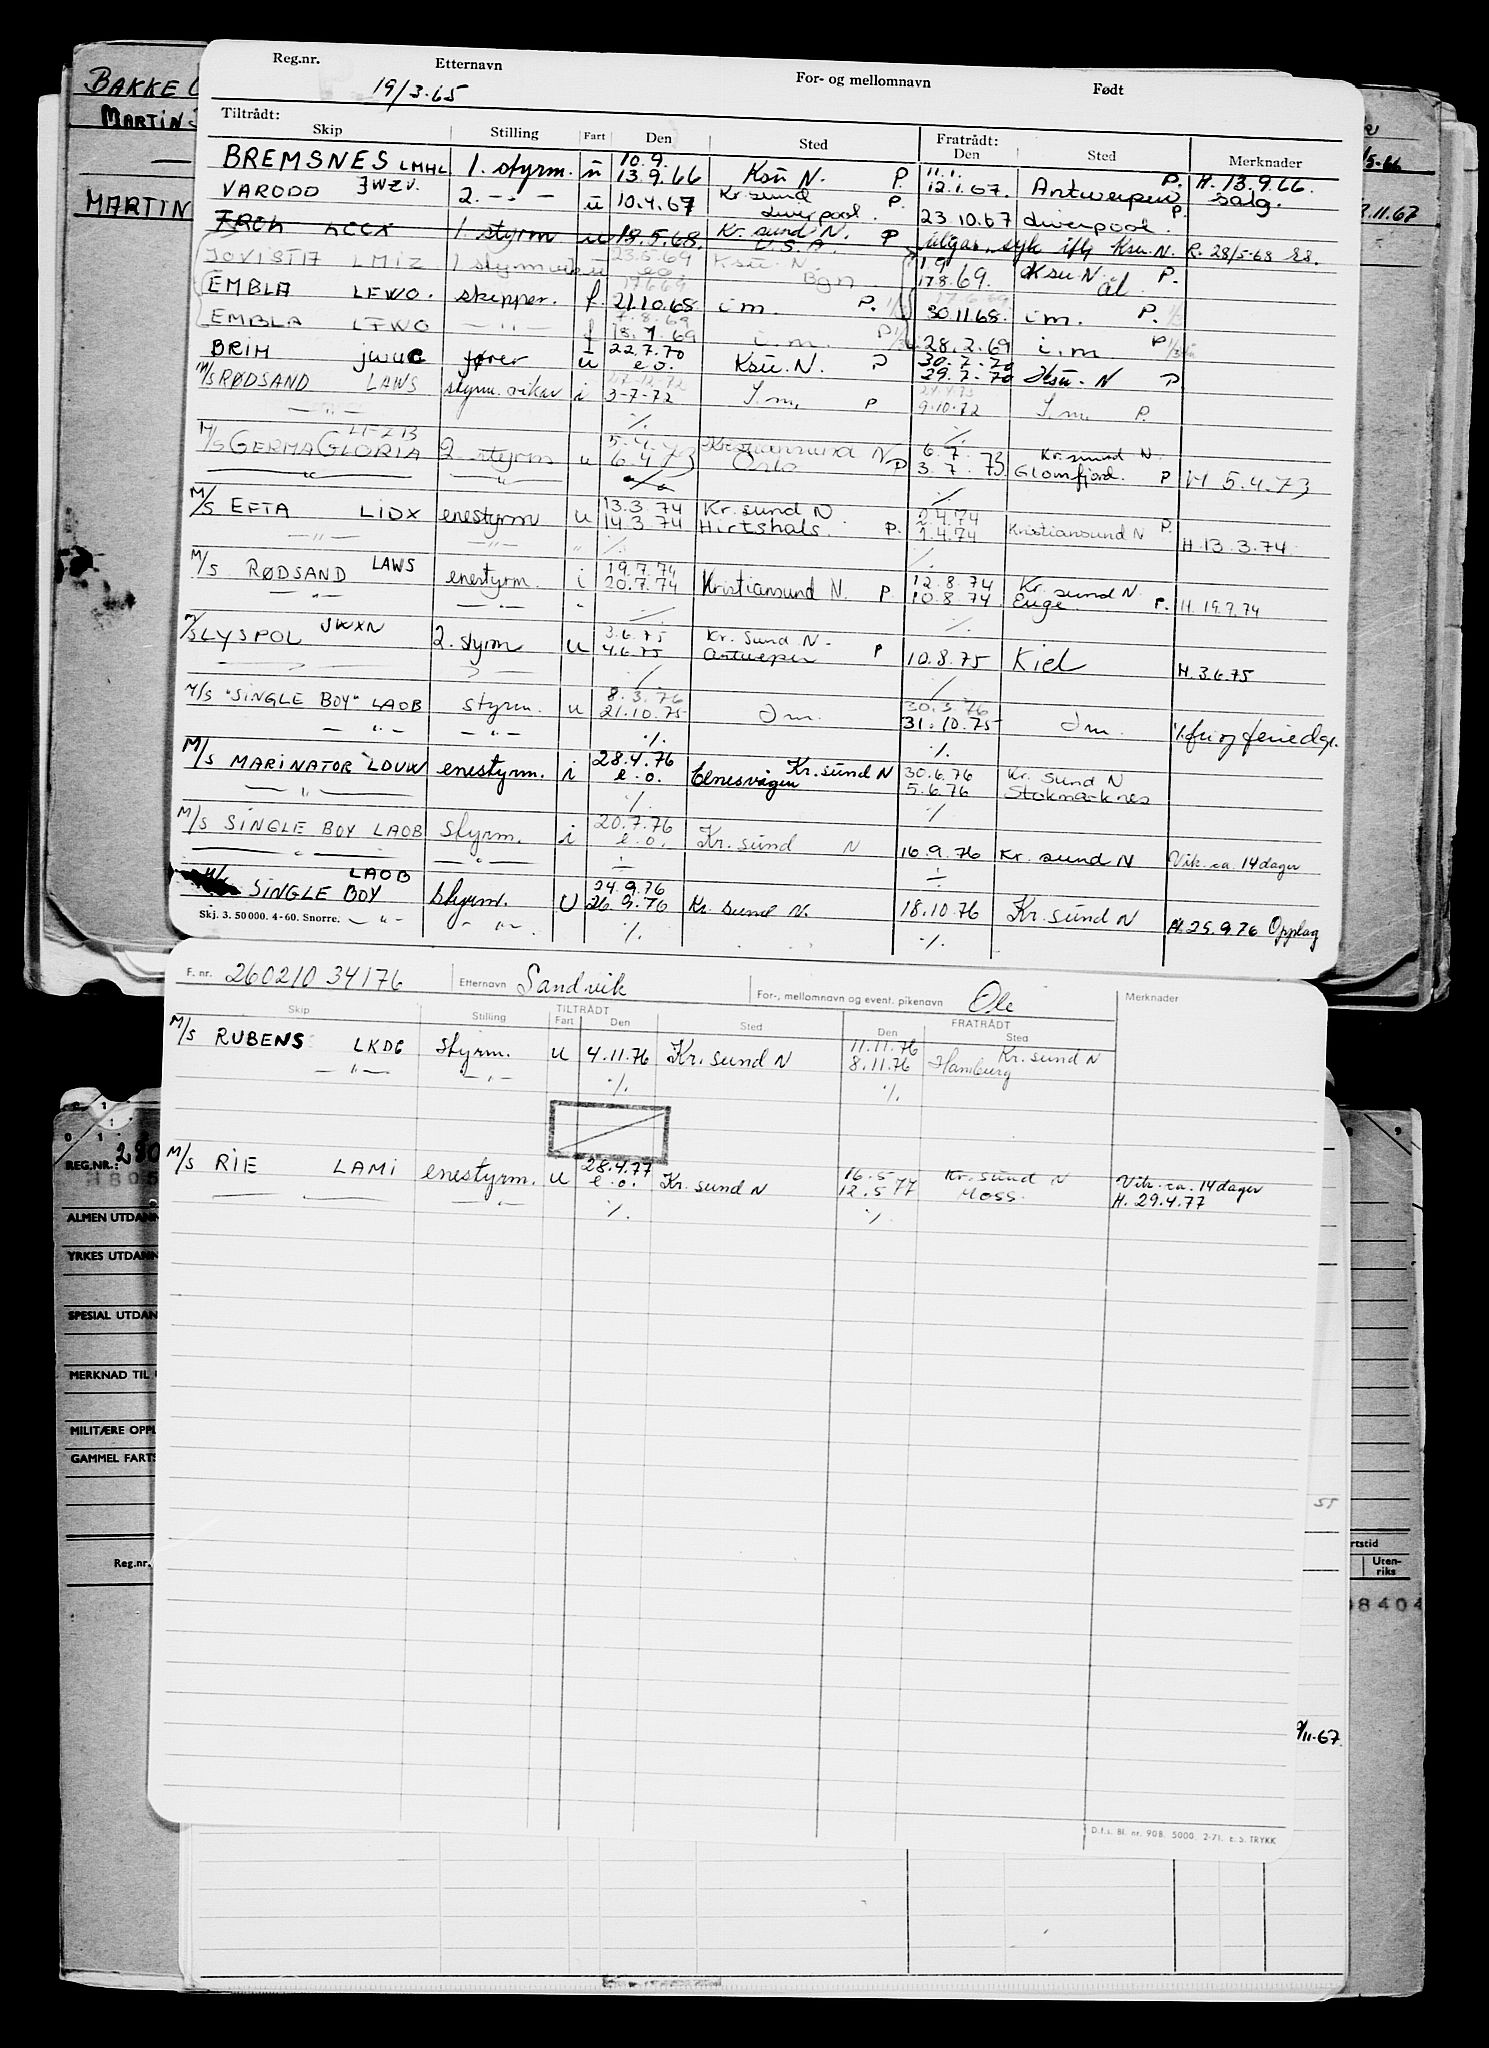 BAKKE
MARTIN
MARTIN
Reg.nr. Etternavn For- og mellomnavn Født
19/3.65
Tiltrådt: Fratrådt:
Skip Stilling Fart Den Sted Den Sted Merknader
10.9. 11.1.
BREMSNES LMHL 1. styrm. u 13.9.66 Ksu N. P. 12.1.67. Antwerpen P. H. 13.9.66.
VARODD JWZV. 2. -"- u 10.4.67 Kr.sund P. 23.10.67 Liverpool. P. salg.
Liverpool.
LCCX 1. styrm u 18.5.68. Kr. sund N. P U.S.A. syk Ksu.N. R. 28/5-68
23.5.69
LMIZ 1 styrm u e.o. Ksu. N Bgn 17.8.69. Ksu N. P.
17.6.69 17.6.69
EMBLA LEWO. skipper. f. 21.10.68 i.m. P. 30.11.68. i.m. P.
EMBLA LEWO -"- f 18.1.69 i.m. P 28.2.69 i.m P
22.7.70 30.7.70
BRIM JWUC fører u e.o. Ksu. N. P 29.7.70 Ksu. N P.
M/S RØDSAND LAWS styrm. vikar i 3-7-72 I.m. P 9.10.72 I.m. P.
-"- %
M/S GERMA GLORIA 2 styrm u 5.4.73 Kristiansund N 6.7.73 Kr.sund N.
6.4.73 Oslo P 3.7.73 Glomfjord. P H 5.4.73
M/S EFTA LIDX enestyrm u 13.3.74 Kr.sund N 2.4.74
-"- -"- 14.3.74 Hirtshals. P. 2.4.74 Kristiansund N P. H.13.3.74
M/S RØDSAND LAWS enestyrm. i 19.7.74 12.8.74 Kr.sund N.
-"- -"- 20.7.74 Kristiansund N. P 10.8.74 P. H. 19.7.74
M/S LYSPOL JWXN 2. styrm u 3.6.75 Kr. Sund N.
4.6.75 Antwerpen P 10.8.75 Kiel H. 3.6.75
M/S "SINGLE BOY" LAOB styrm. u 8.3.76 30.3.76
-"- -"- 21.10.75 I m. 31.10.75 I m.
M/S MARINATOR LDUW enestyrm. i 28.4.76 Kr.sund N 30.6.76 Kr. Sund N
-"- e.o. Elnesvågen 5.6.76 Stokmarknes
M/S SINGLE BOY LAOB styrm. i 20.7.76
-"- -"- e.o. Kr. sund N 16.9.76 Kr. sund N Vik. ca. 14 dager
LAOB 24.9.76
SINGLE BOY styrm. U 26.9.76 Kr. sund N. 18.10.76 Kr. sund N H. 25.9.76 Opplag
Skj. 3. 50000. 4-60. Snorre. -"- -"- % %
F. nr. 260210 34176 Etternavn Sandvik For-, mellomnavn og event. pikenavn Ole Merknader
TILTRÅDT FRATRÅDT
Skip Stilling Fart Den Sted Den Sted
11.11.76 Kr.sund N
M/S RUBENS LKDG styrm. u 4.11.76 Kr. sund N 8.11.76 Hamburg
-"- -"- % %
28.4.77 16.5 Kr. sund N Vik. ca. 14 dager
M/S RIE LAMI enestyrm. u e.o. Kr. sund N 12.5.77 Moss. H. 29.4.77
-"- % %
D.f.s. Bl. nr. 90B. 5000. 2-71. E. S. TRYKK
REG.NR.: 280
ALMEN UTDAN
YRKES UTDAN
SPESIAL UTDAN
MERKNAD TIL
MILITÆRE OPPL
GAMMEL FARTS
Reg.nr.
rtstid
Uten-
riks
8404
/11-67.